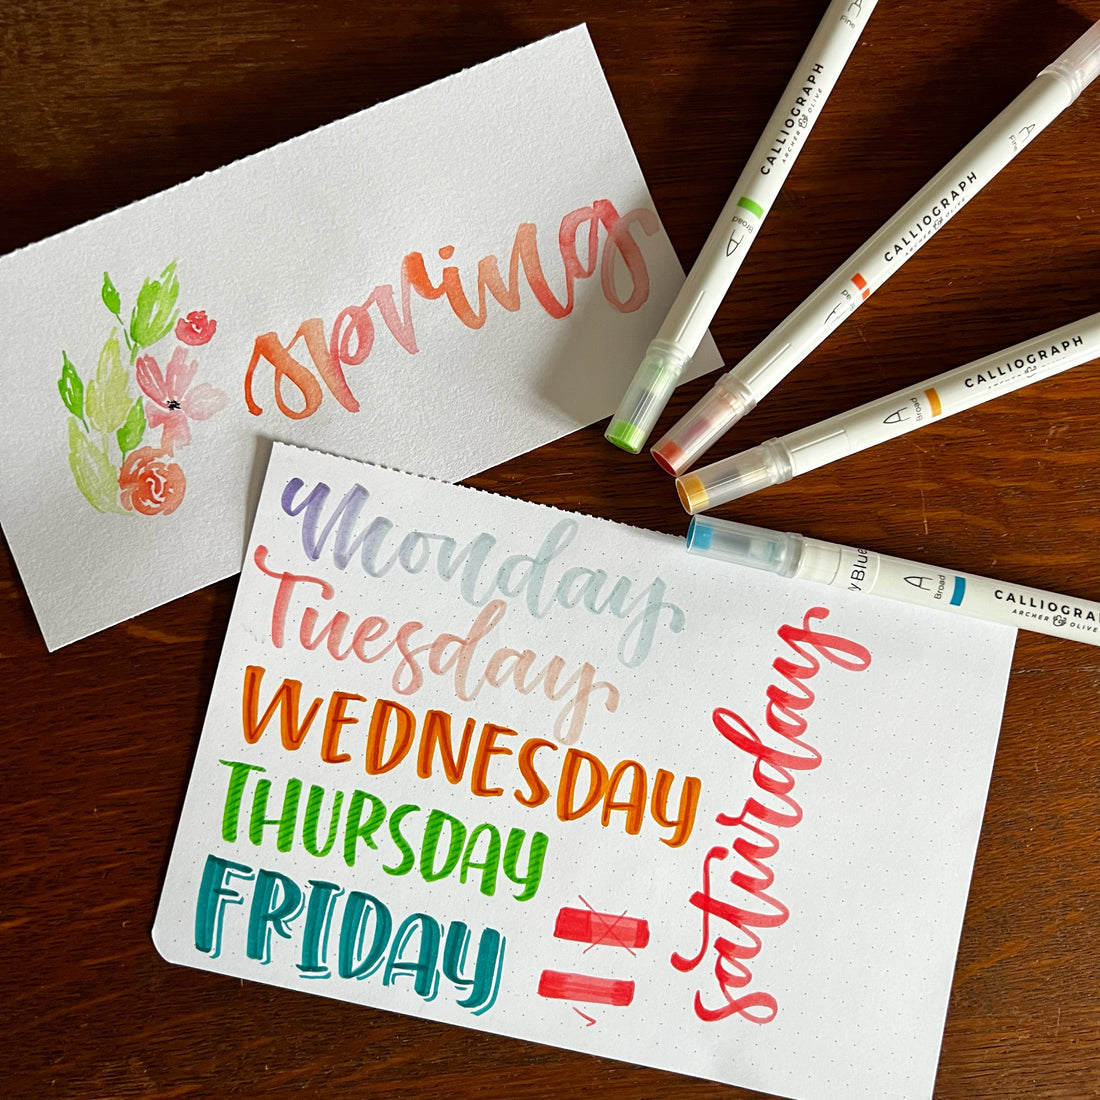 spring
Monday
Tuesday
WEDNESDAY
THURSDAY
FRIDAY
saturday
Fine
CALLIOGRAPH
ARCHER & OLIVE
Broad
Fine
CALLIOGRAPH
ARCHER & OLIVE
CALLIOGRAPH
ARCHER & OLIVE
Broad
Blue
Broad
CALLIOGRAPH
ARCHER & OLIVE